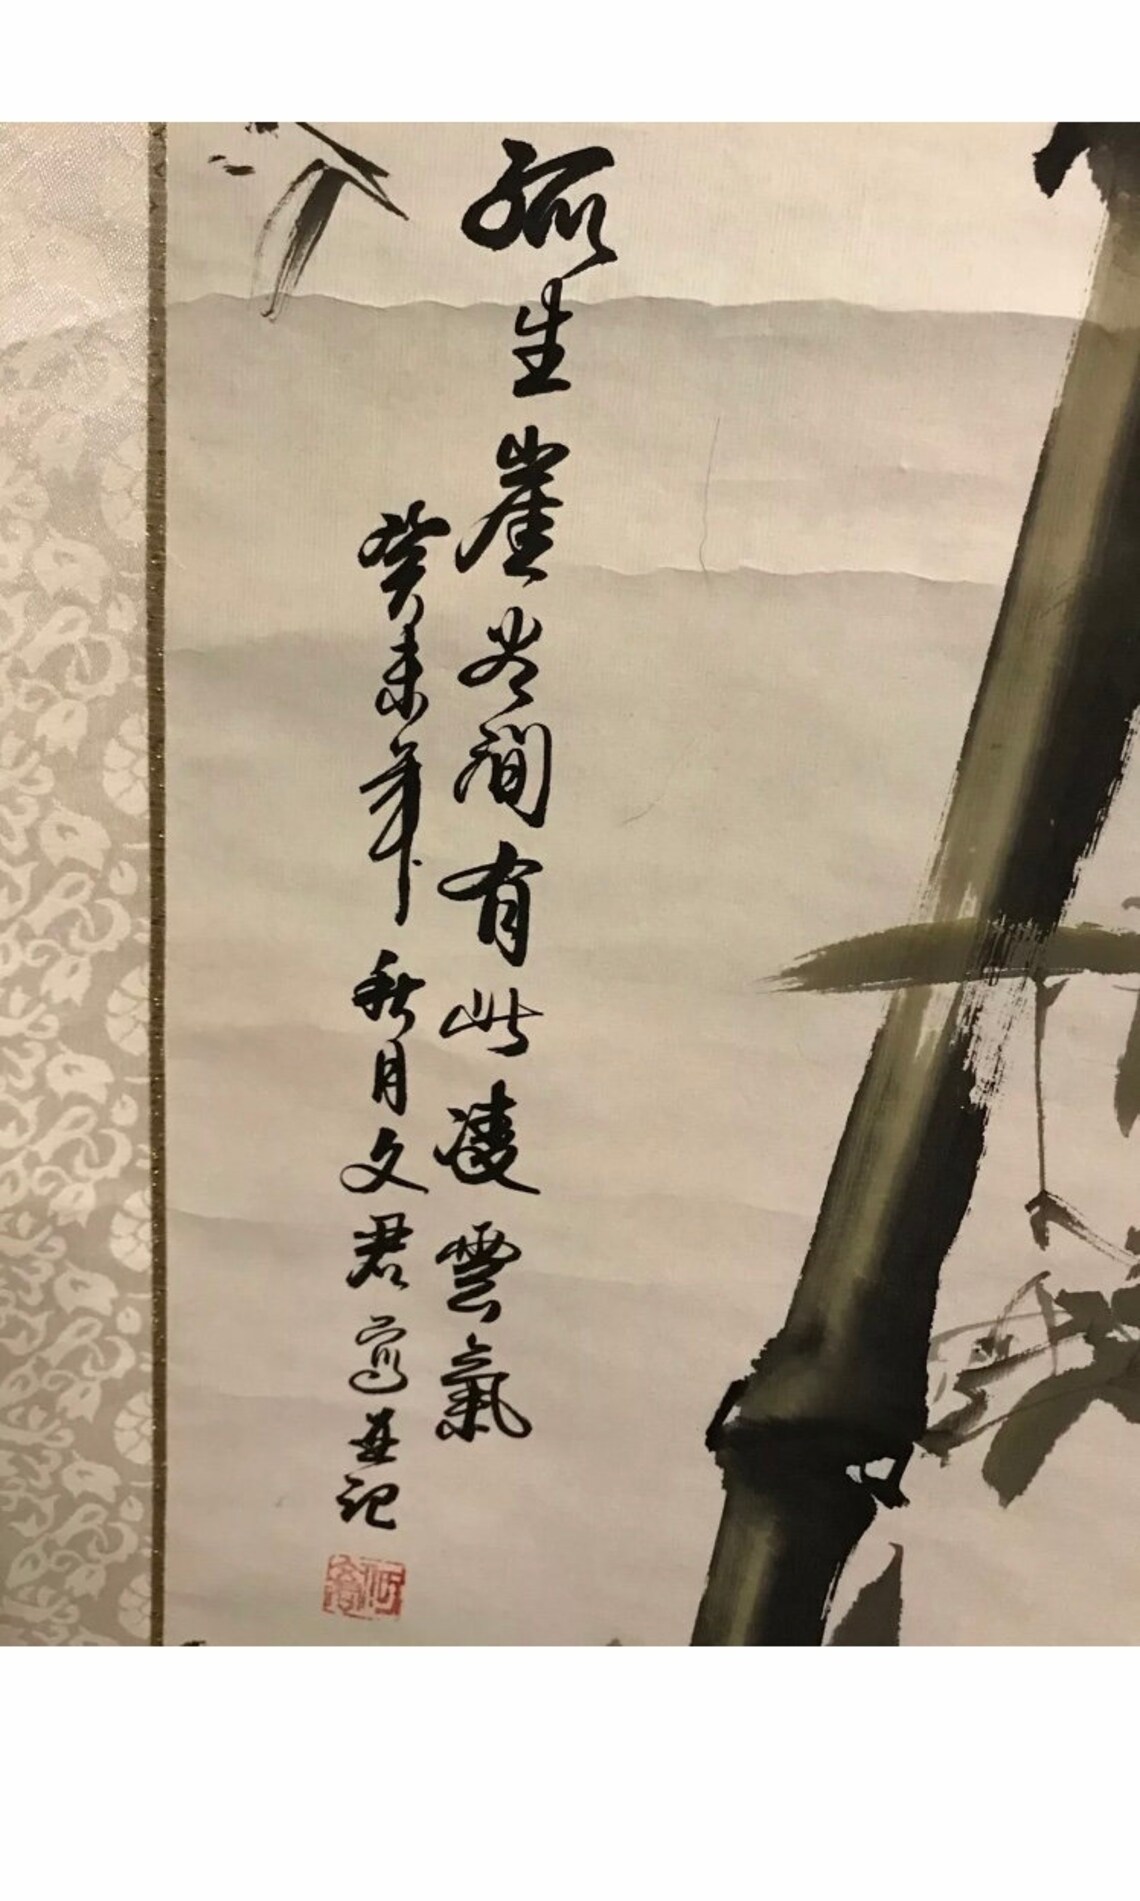 孤生崖谷間有此凌雲氣
癸未年秋月文君寫並記